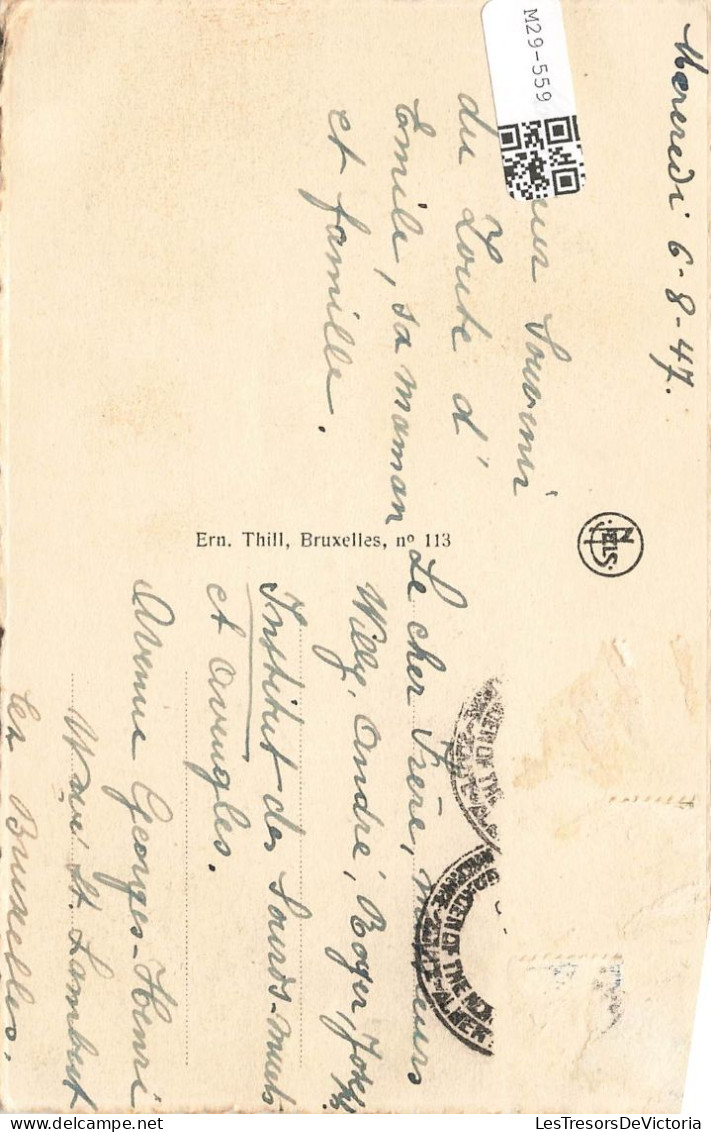 Mercredi 6-8-47.
Souvenir
du Zoute d'
Emile, sa maman
et famille.
Ern. Thill, Bruxelles, nº 113
NELS
Le cher Frère,
Willy, André, Roger,
Institut des Sourds-muets
et aveugles.
Avenue Georges-Henri
Wwé St. Lambert
lez Bruxelles.
GARDEN OF THE N
M29-559
LesTresorsDeVictoria